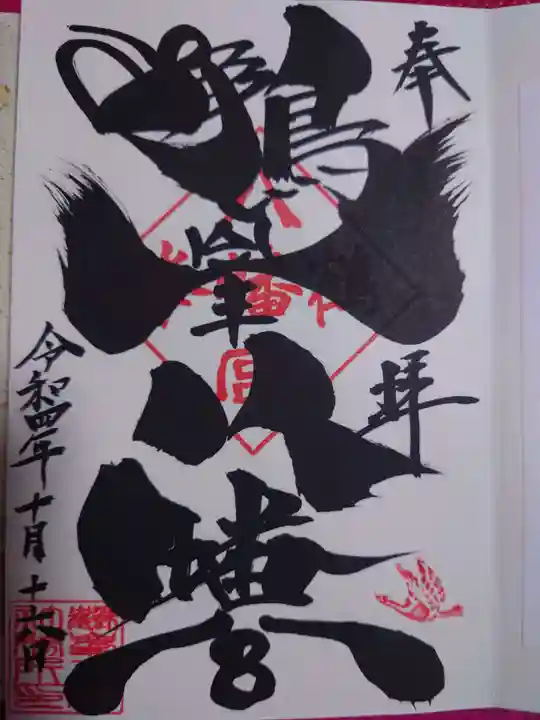 奉拝
鶴峯八幡宮
令和四年十月十六日